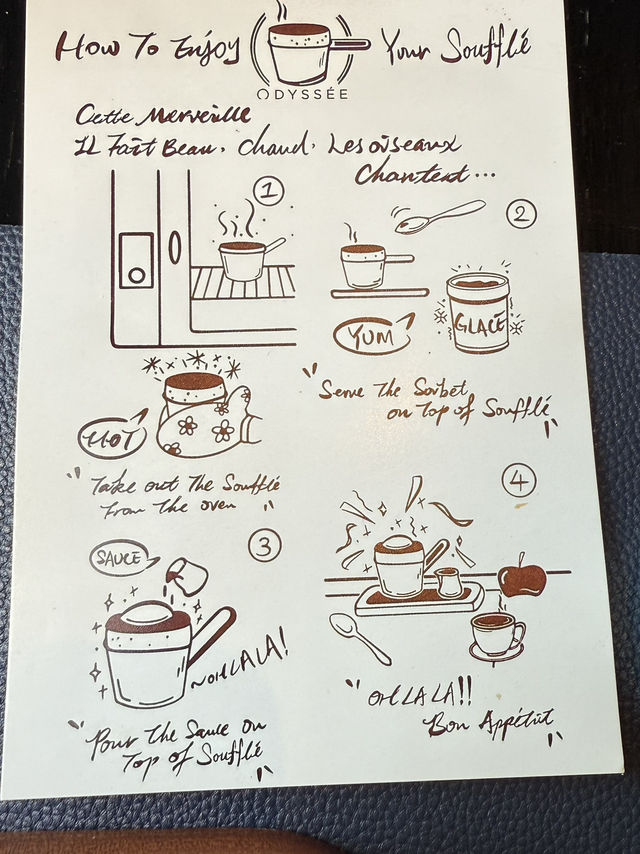 How To Enjoy Your Soufflé
ODYSSÉE
Cette Merveille
Il Fait Beau, Chaud, Les oiseaux
Chantent...
1
HOT
"Take out The Soufflé
from The oven"
2
YUM
GLACÉ
"Serve The Sorbet
on Top of Soufflé"
3
SAUCE
~OH LA LA!
"Pour The Sauce on
Top of Soufflé"
4
"OH LA LA!!
Bon Appétit"